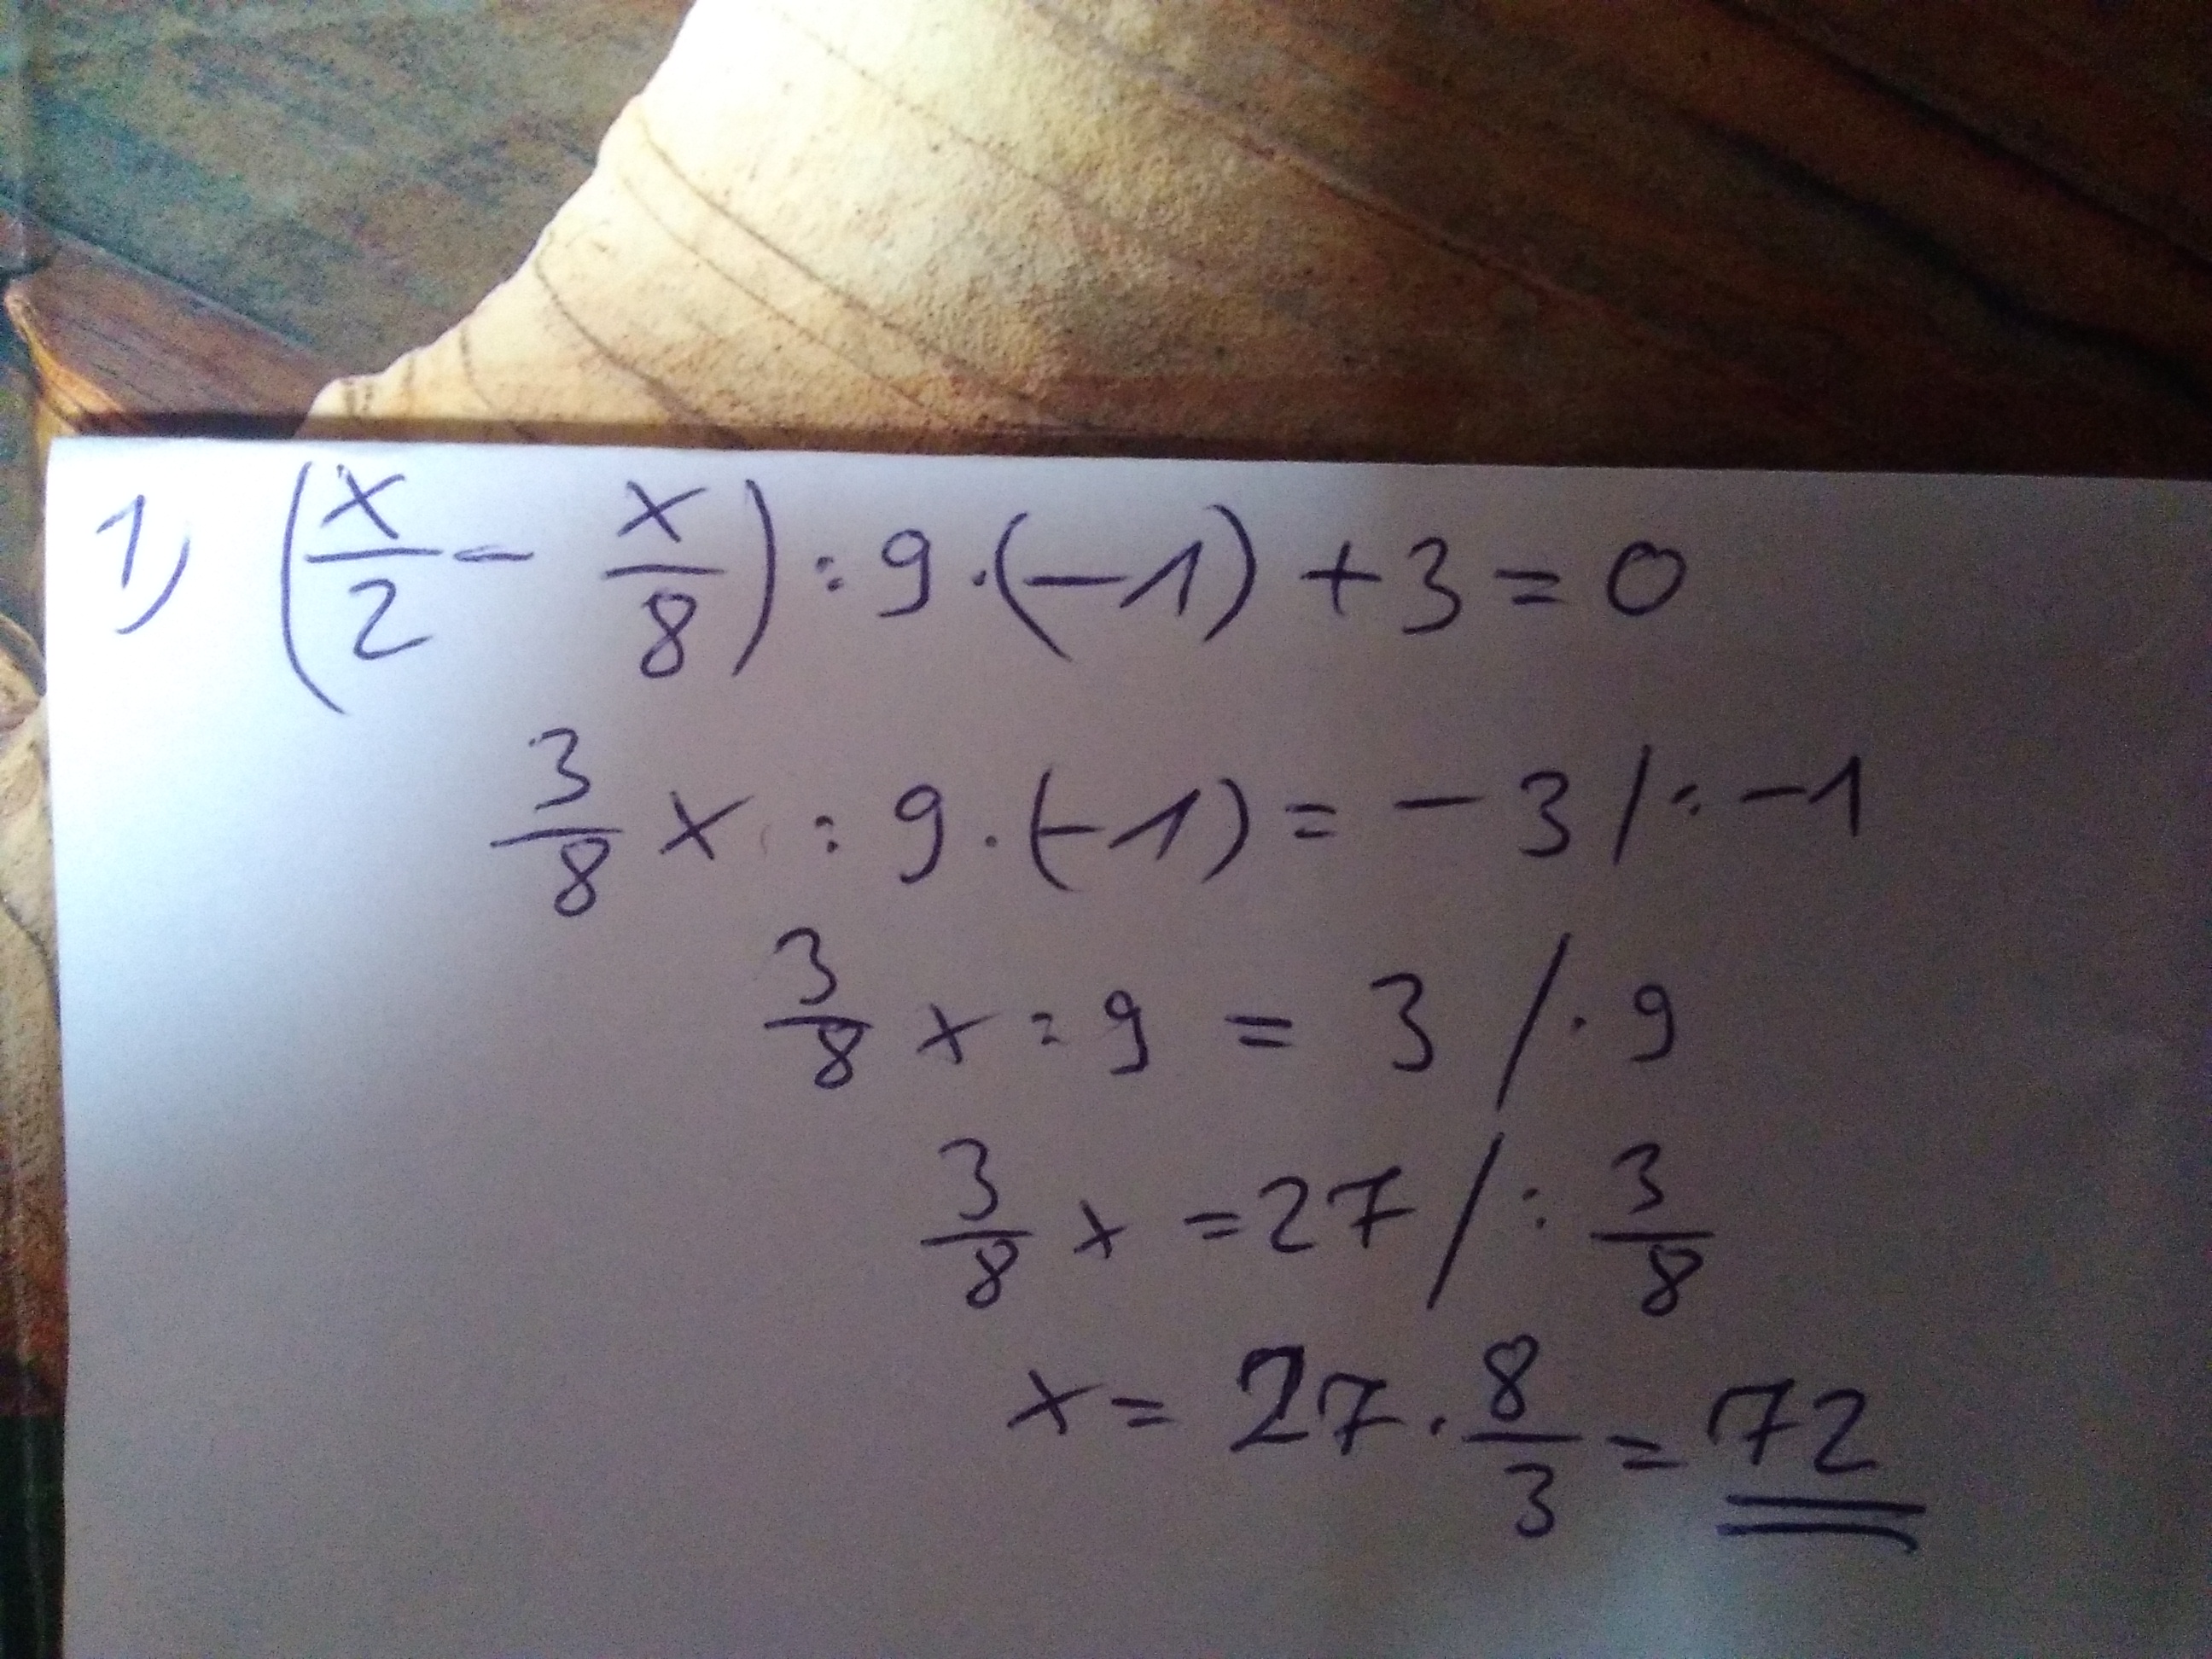 1) (x/2 - x/8) : 9 · (-1) + 3 = 0
3/8 x : 9 · (-1) = -3 / : -1
3/8 x : 9 = 3 / · 9
3/8 x = 27 / : 3/8
x = 27 · 8/3 = 72